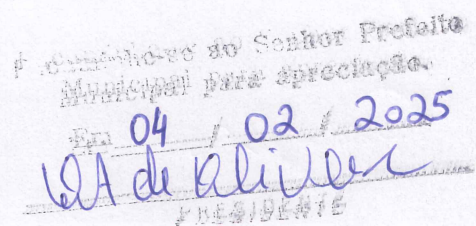 ao Senhor Prefeito
Municipal para apreciação.
Em 04 / 02 / 2025
de Oliveira
PRESIDENTE